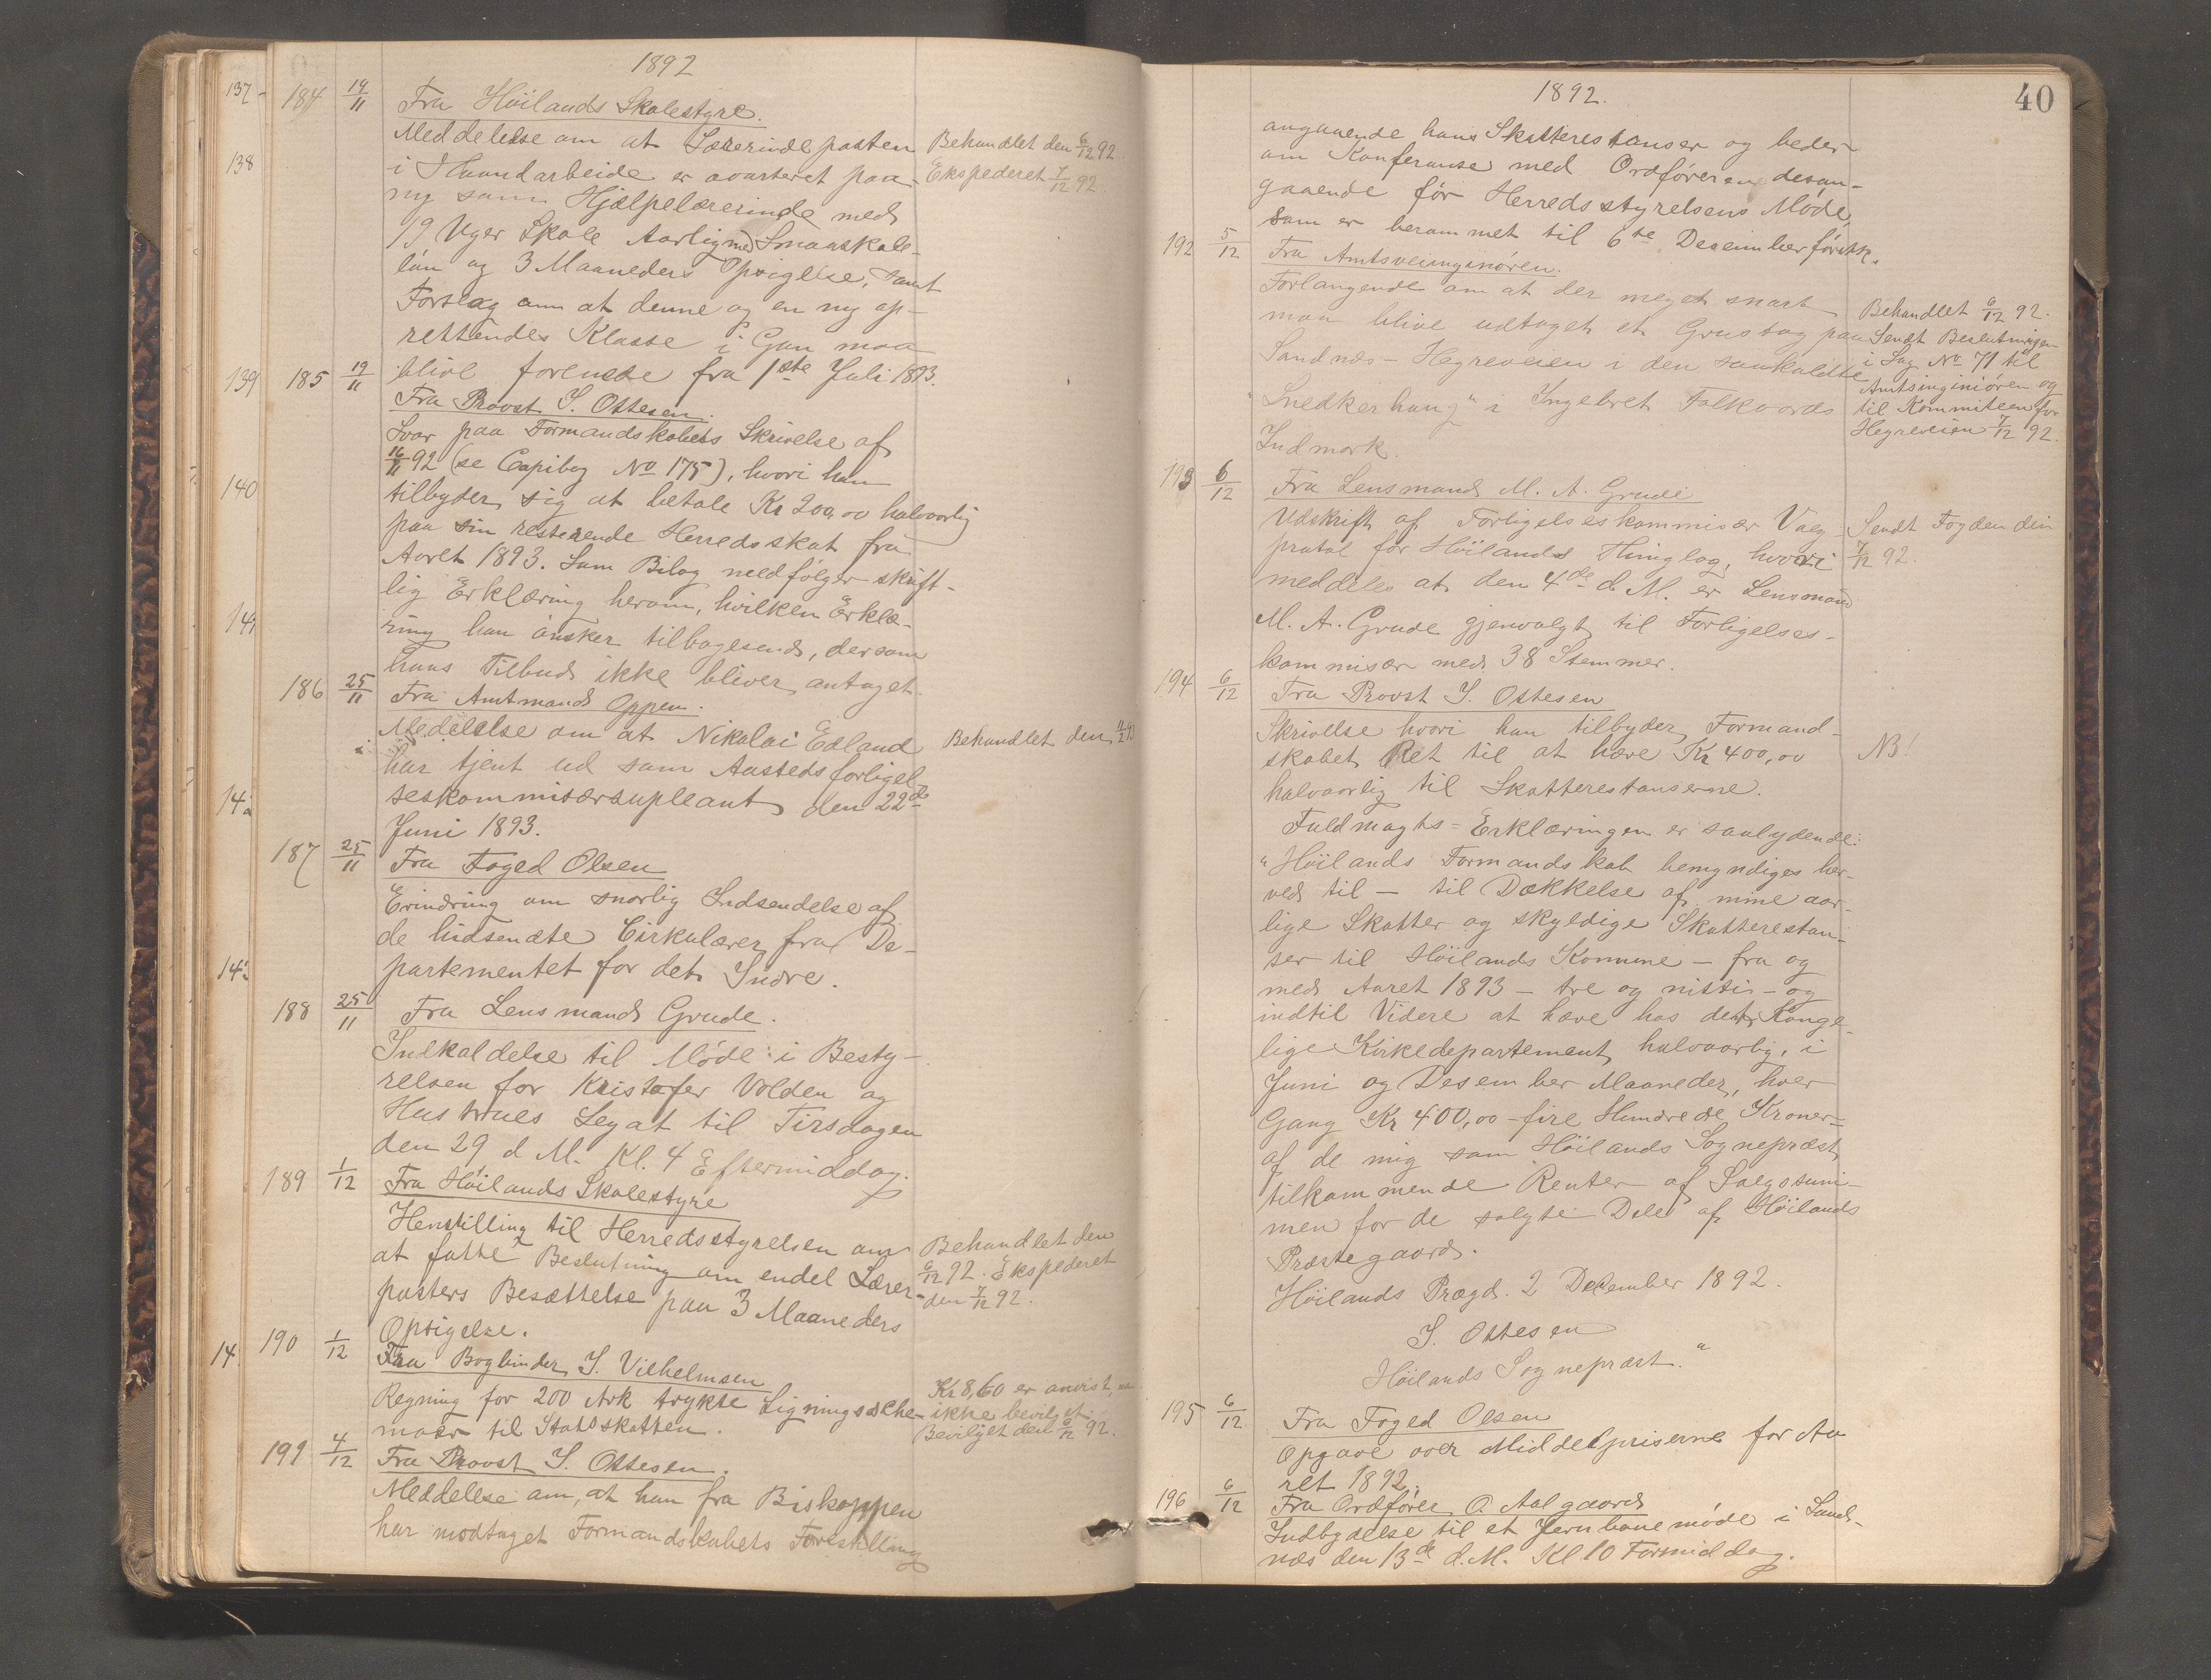 1892
137
184 19/11 Fra Høilands Skolestyre.
Meddelelse om at Lærerindeposten
138
i Haandarbeide er averteret paa
ny som Hjælpelærerinde med
19 Uger Skole Aarlig med Smaaskole-
løn og 3 Maaneders Opsigelse, samt
Forslag om at denne og en ny op-
rettendes Klasse i Gan maa
blive forenede fra 1ste Juli 1893.
Behandlet den 6/12 92.
Ekspederet 7/12 92.
139
185 19/11 Fra Provst S. Ottesen.
Svar paa Formandskabets Skrivelse af
16/11 92 (se Copibog No 175), hvori han
140
tilbyder sig at betale Kr 200,00 halvaarlig
paa sin resterende Herredsskat fra
Aaret 1893. Som Bilag medfølger skrift-
lig Erklæring herom, hvilken Erklæ-
141
ring han ønsker tilbagesendt, dersom
hans Tilbud ikke bliver antaget.
186 25/11 Fra Amtmand Oppen.
Medelelse om at Nikolai Edland
har tjent ud som Aastedsforligel-
seskommisærsupleant den 22de
Juni 1893.
Behandlet den 11/2 93
142
187 25/11 Fra Foged Olsen
Erindring om snarlig Indsendelse af
de hidsendte Cirkulærer fra De-
partementet for det Indre.
143
188 25/11 Fra Lensmand Grude.
Indkaldelse til Møde i Besty-
relsen for Kristofer Volden og
Hustrues Legat til Tirsdagen
den 29 d M. Kl. 4 Eftermiddag.
189 1/12 Fra Høilands Skolestyre
Henstilling til Herredsstyrelsen om
at fatte Beslutning om endel Lærer-
posters Besættelse paa 3 Maaneders
Opsigelse.
Behandlet den
6/12 92. Ekspederet
den 7/12 92.
14
190 1/12 Fra Bogbinder S. Vilhelmsen
Regning for 200 Ark trykte Ligningssche-
maer til Statsskatten.
Kr 8,60 er anvist, men
ikke bevilget.
Bevilget den 6/12 92.
191 4/12 Fra Provst S. Ottesen.
Meddelese om, at han fra Biskoppen
har modtaget Formandskabets Forestilling
1892.
40
angaaende hans Skatterestanser og beder
om Konferanse med Ordføreren desan-
gaaende før Herredsstyrelsens Møde,
som er berammet til 6te Desember førstk.
192 5/12 Fra Amtsveiingenøren.
Forlangende om at der meget snart
maa blive udtaget et Grustag paa
Sandnæs-Hegreveien i den saakaldte
"Snedkerhaug" i Ingebret Folkvords
Indmark.
Behandlet 6/12 92.
Sendt Beslutningen
i Sag No 71 til
Amtsinginiøren og
til Kommiteen for
Hegreveien 7/12 92.
193 6/12 Fra Lensmand M. A. Grude
Udskrift af Forligelseskommisær Valg-
protol for Høilands Thinglag, hvori
meddeles at den 4de d. M. er Lensmand
M. A. Grude gjenvalgt til Forligelses-
kommisær med 38 Stemmer.
Sendt Fogden din
7/12 92.
194 6/12 Fra Provst S. Ottesen
Skrivelse hvori han tilbyder Formand-
skabet Ret til at hæve Kr 400,00
halvaarlig til Skatterestanserne.
NB!
Fuldmagts-Erklæringen er saalydende:
"Høilands Formandskab bemyndiges her-
ved til — til Dækkelse af mine aar-
lige Skatter og skyldige Skatterestan-
ser til Høilands Komune — fra og
med Aaret 1893 — tre og nitti — og
indtil Videre at hæve hos det Konge-
lige Kirkedepartement halvaarlig, i
Juni og Desember Maaneder, hver
Gang Kr 400,00 - fire Hundrede Kroner -
af de mig som Høilands Sognepræst
tilkommende Renter af Salgssum-
men for de solgte Dele af Høilands
Præstegaard.
Høilands Prægd. 2 December 1892.
S. Ottesen
Høilands Sognepræst."
195 6/12 Fra Foged Olsen
Opgave over Middelpriserne for Aa
ret 1892.
196 6/12 Fra Ordfører O. Aalgaard
Indbydelse til et Jernbanemøde i Sand-
næs den 13de d. M. Kl 10 Formiddag.